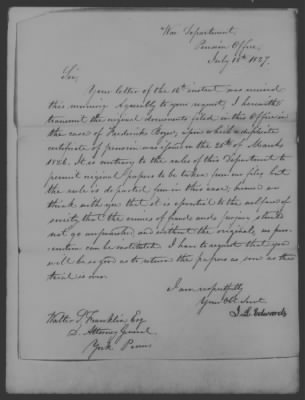 War Department,
Pension Office,
July 18th 1827.
Sir,
Your letter of the 16th instant was received
this morning. Agreeably to your request, I herewith
transmit the original documents filed in this Office in
the case of Frederick Boyer, upon which a duplicate
certificate of pension was issued on the 20th of March
1826. It is contrary to the rules of this Department to
permit original papers to be taken from our files, but
the rule is departed from in this case,
think with you that it is essential to the welfare of
society that the crimes of fraud and perjury should
not go unpunished and without the originals, no prose-
cution can be instituted. I have to request that you
will be so good as to return the papers as soon as the
trial is over.
I am respectfully
Your Obt. Servt.
J. L. Edwards
Walter S. Franklin Esq
D. Attorney General
York Penna